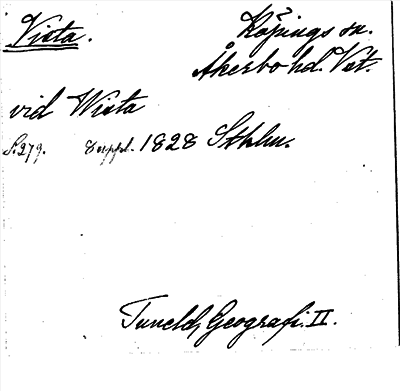 Vista.
Köpings sn.
Åkerbo hd. Vst.
vid Wista
S. 279. 8 uppl. 1828 Sthlm.
Tuneld, Geografi. II.